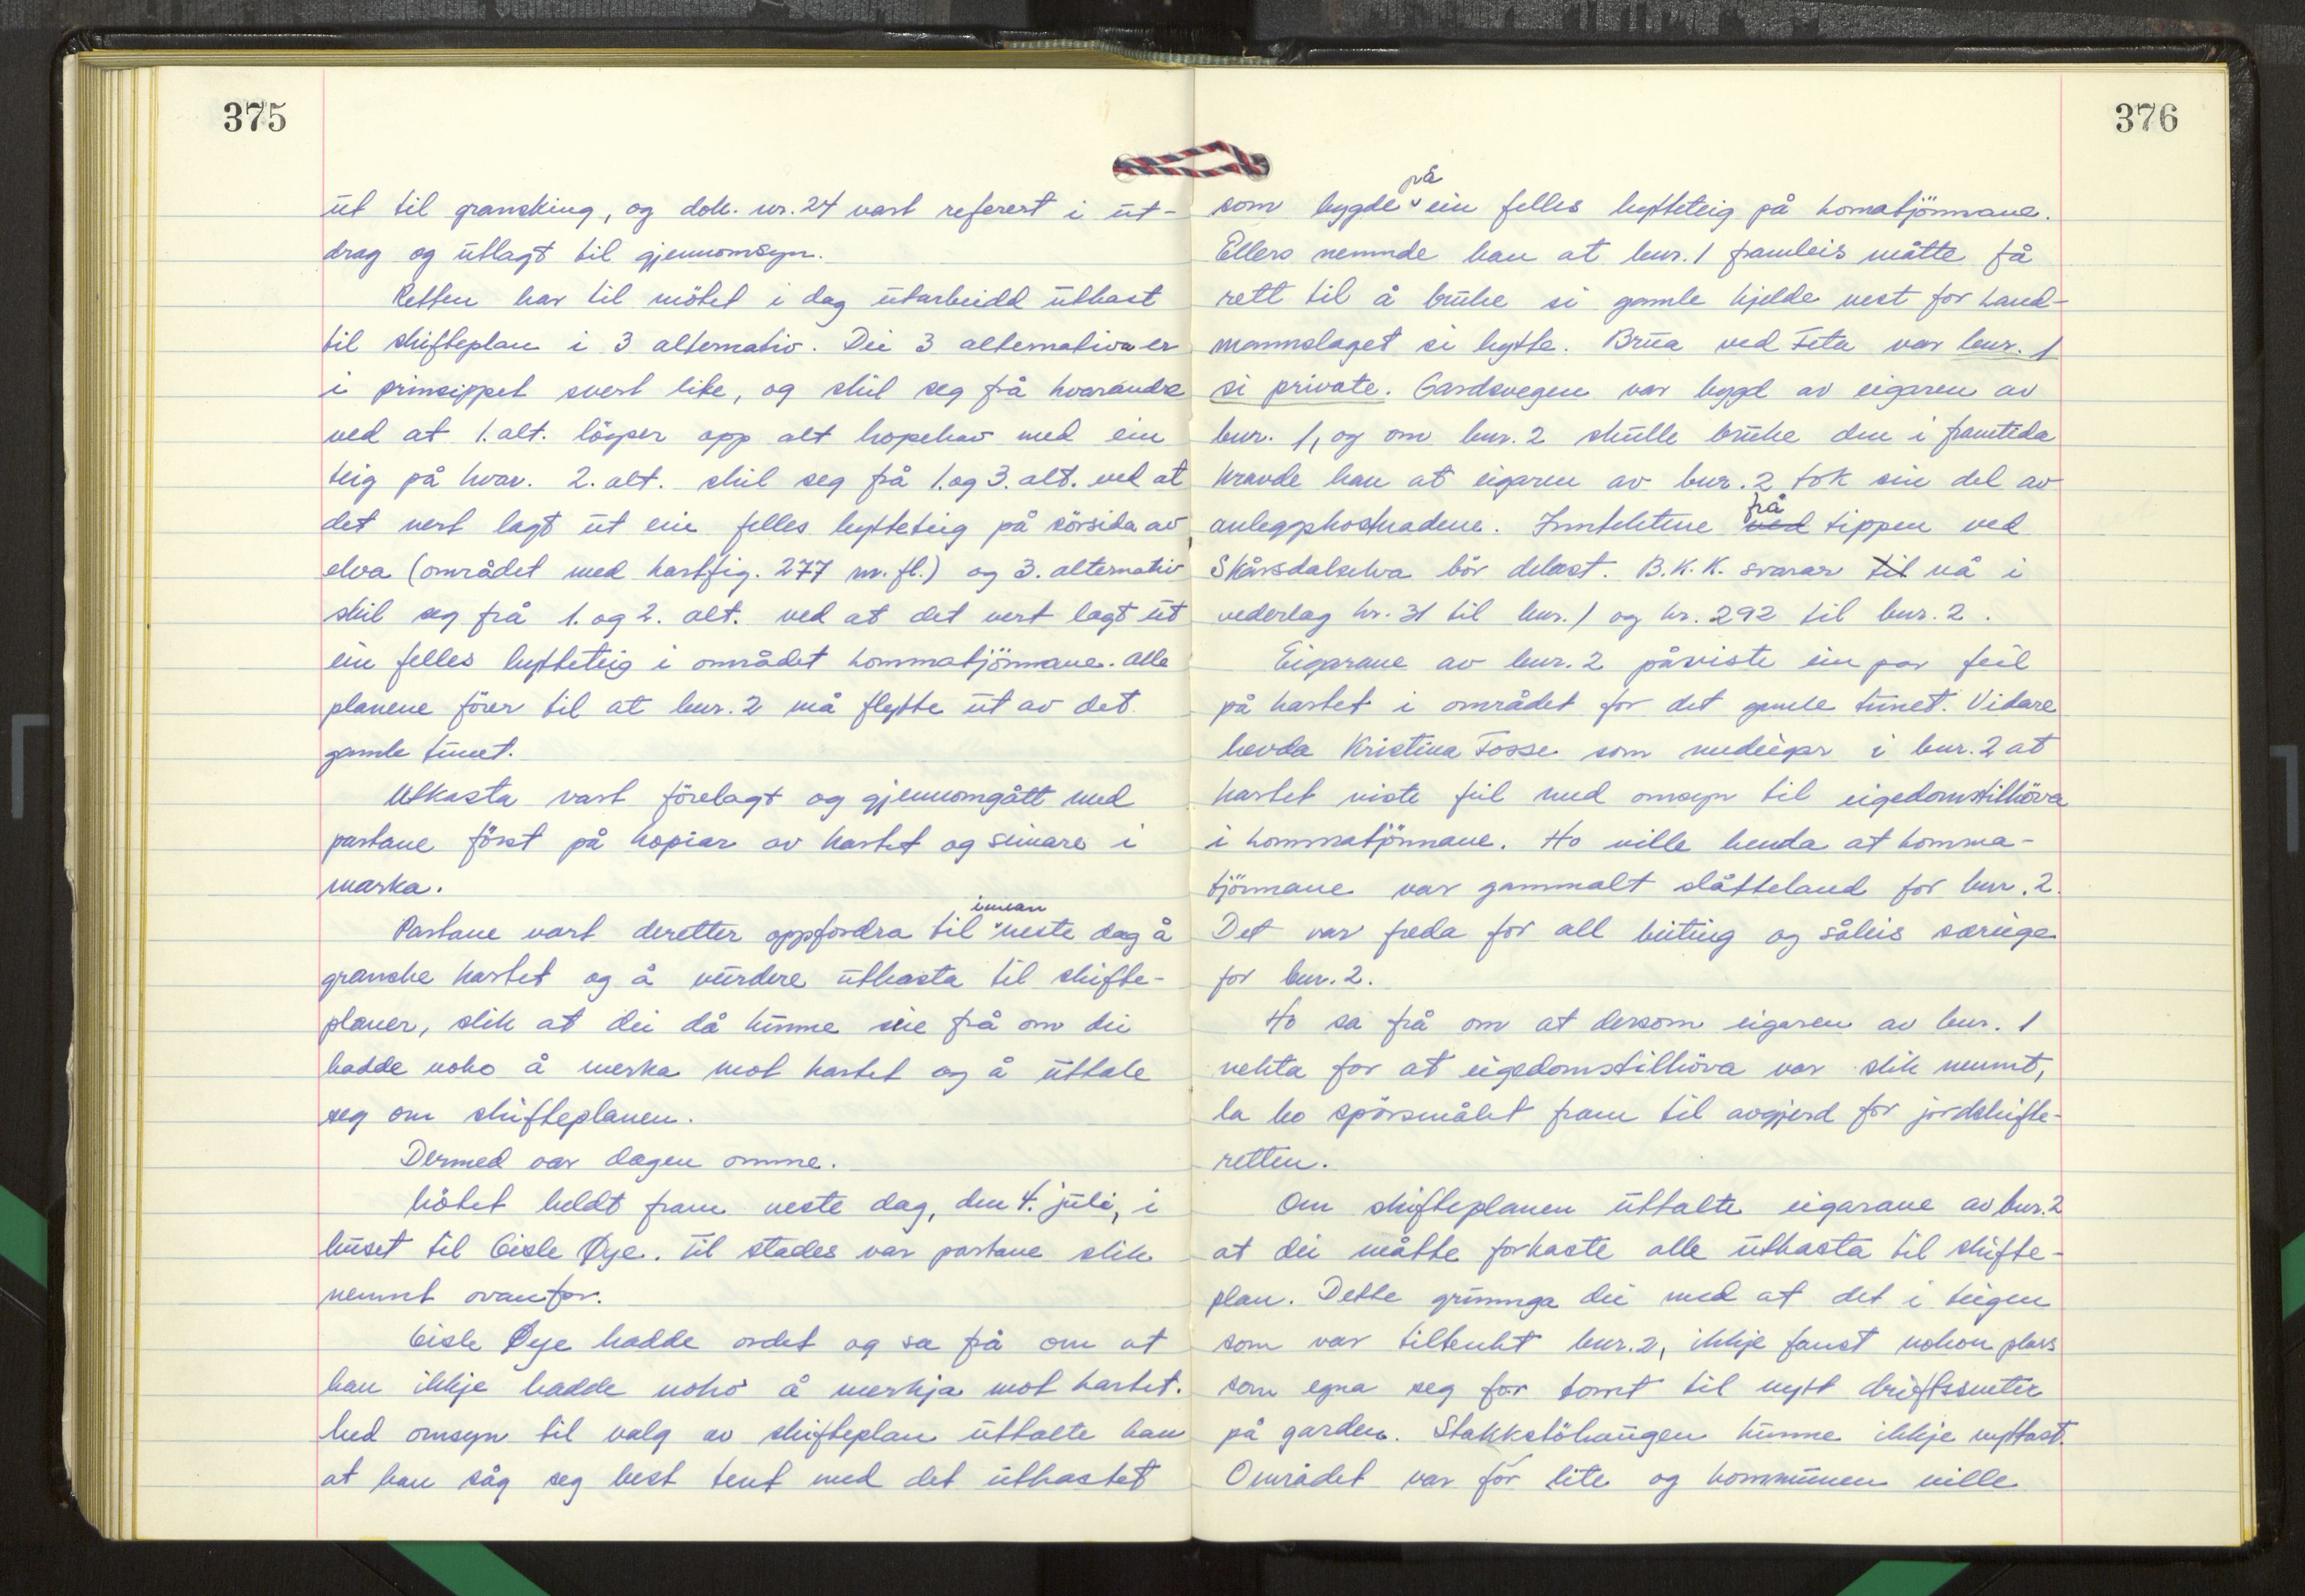 375
ut til gransking, og dok. nr. 24 vart referert i ut-
drag og utlagt til gjennomsyn.
Retten har til mötet i dag utarbeidd utkast
til skifteplan i 3 alternativ. Dei 3 alternativa er
i prinsippet svert like, og skil seg frå kvarandre
ved at 1. alt. löyser opp alt hopehav med ein
teig på kvar. 2. alt. skil seg frå 1. og 3. alt. ved at
det vert lagt ut ein felles hytteteig på sörsida av
elva (området med kartfig. 277 m. fl.) og 3. alternativ
skil seg frå 1. og 2. alt. ved at det vert lagt ut
ein felles hytteteig i området Lommatjönnane. Alle
planene förer til at bnr. 2 må flytte ut av det
gamle tunet.
Utkasta vart förelagt og gjennomgått med
partane först på kopiar av kartet og seinare i
marka.
Partane vart deretter oppfordra til innan neste dag å
granske kartet og å vurdere utkasta til skifte-
planer, slik at dei då kunne seie frå om dei
hadde noko å merka mot kartet og å uttale
seg om skifteplanen.
Dermed var dagen omme.
Mötet heldt fram neste dag, den 4. juli, i
huset til Gisle Øye. Til stades var partane slik
nemnt ovanfor.
Gisle Øye hadde ordet og sa frå om at
han ikkje hadde noko å merkja mot kartet.
Med omsyn til valg av skifteplan uttalte han
at han såg seg best tent med det utkastet
376
som bygde på ein felles hytteteig på Lomatjönnane.
Ellers nemnde han at bnr. 1 framleis måtte få
rett til å bruke si gamle kjelde vest for Land-
mannslaget si hytte. Brua ved Feta var bnr. 1
si private. Gardsvegen var bygd av eigaren av
bnr. 1, og om bnr. 2 skulle bruke den i framtida
kravde han at eigaren av bnr. 2 tok sin del av
anleggskostnadene. Inntektene ved frå tippen ved
Skårsdalselva bör delast. B.K.K. svarar til nå i
vederlag kr. 31 til bnr. 1 og kr. 292 til bnr. 2.
Eigarane av bnr. 2 påviste ein par feil
på kartet i området for det gamle tunet. Vidare
hevda Kristina Fosse som medeigar i bnr. 2 at
kartet viste feil med omsyn til eigedomstilhöva
i Lommatjönnane. Ho ville henda at Lomma-
tjönnane var gammalt slåtteland for bnr. 2.
Det var freda for all beiting og såleis særeige
for bnr. 2.
Ho sa frå om at dersom eigaren av bnr. 1
nekta for at eigedomstilhöva var slik nemnt,
la ho spörsmålet fram til avgjerd for jordskifte-
retten.
Om skifteplanen uttalte eigarane av bnr. 2
at dei måtte forkaste alle utkasta til skifte-
plan. Dette grunnga dei med at det i teigen
som var tiltenkt bnr. 2, ikkje fanst nokon plass
som egna seg for tomt til nytt driftssenter
på garden. Stakkstöhaugen kunne ikkje nyttast.
Området var for lite og kommunen ville